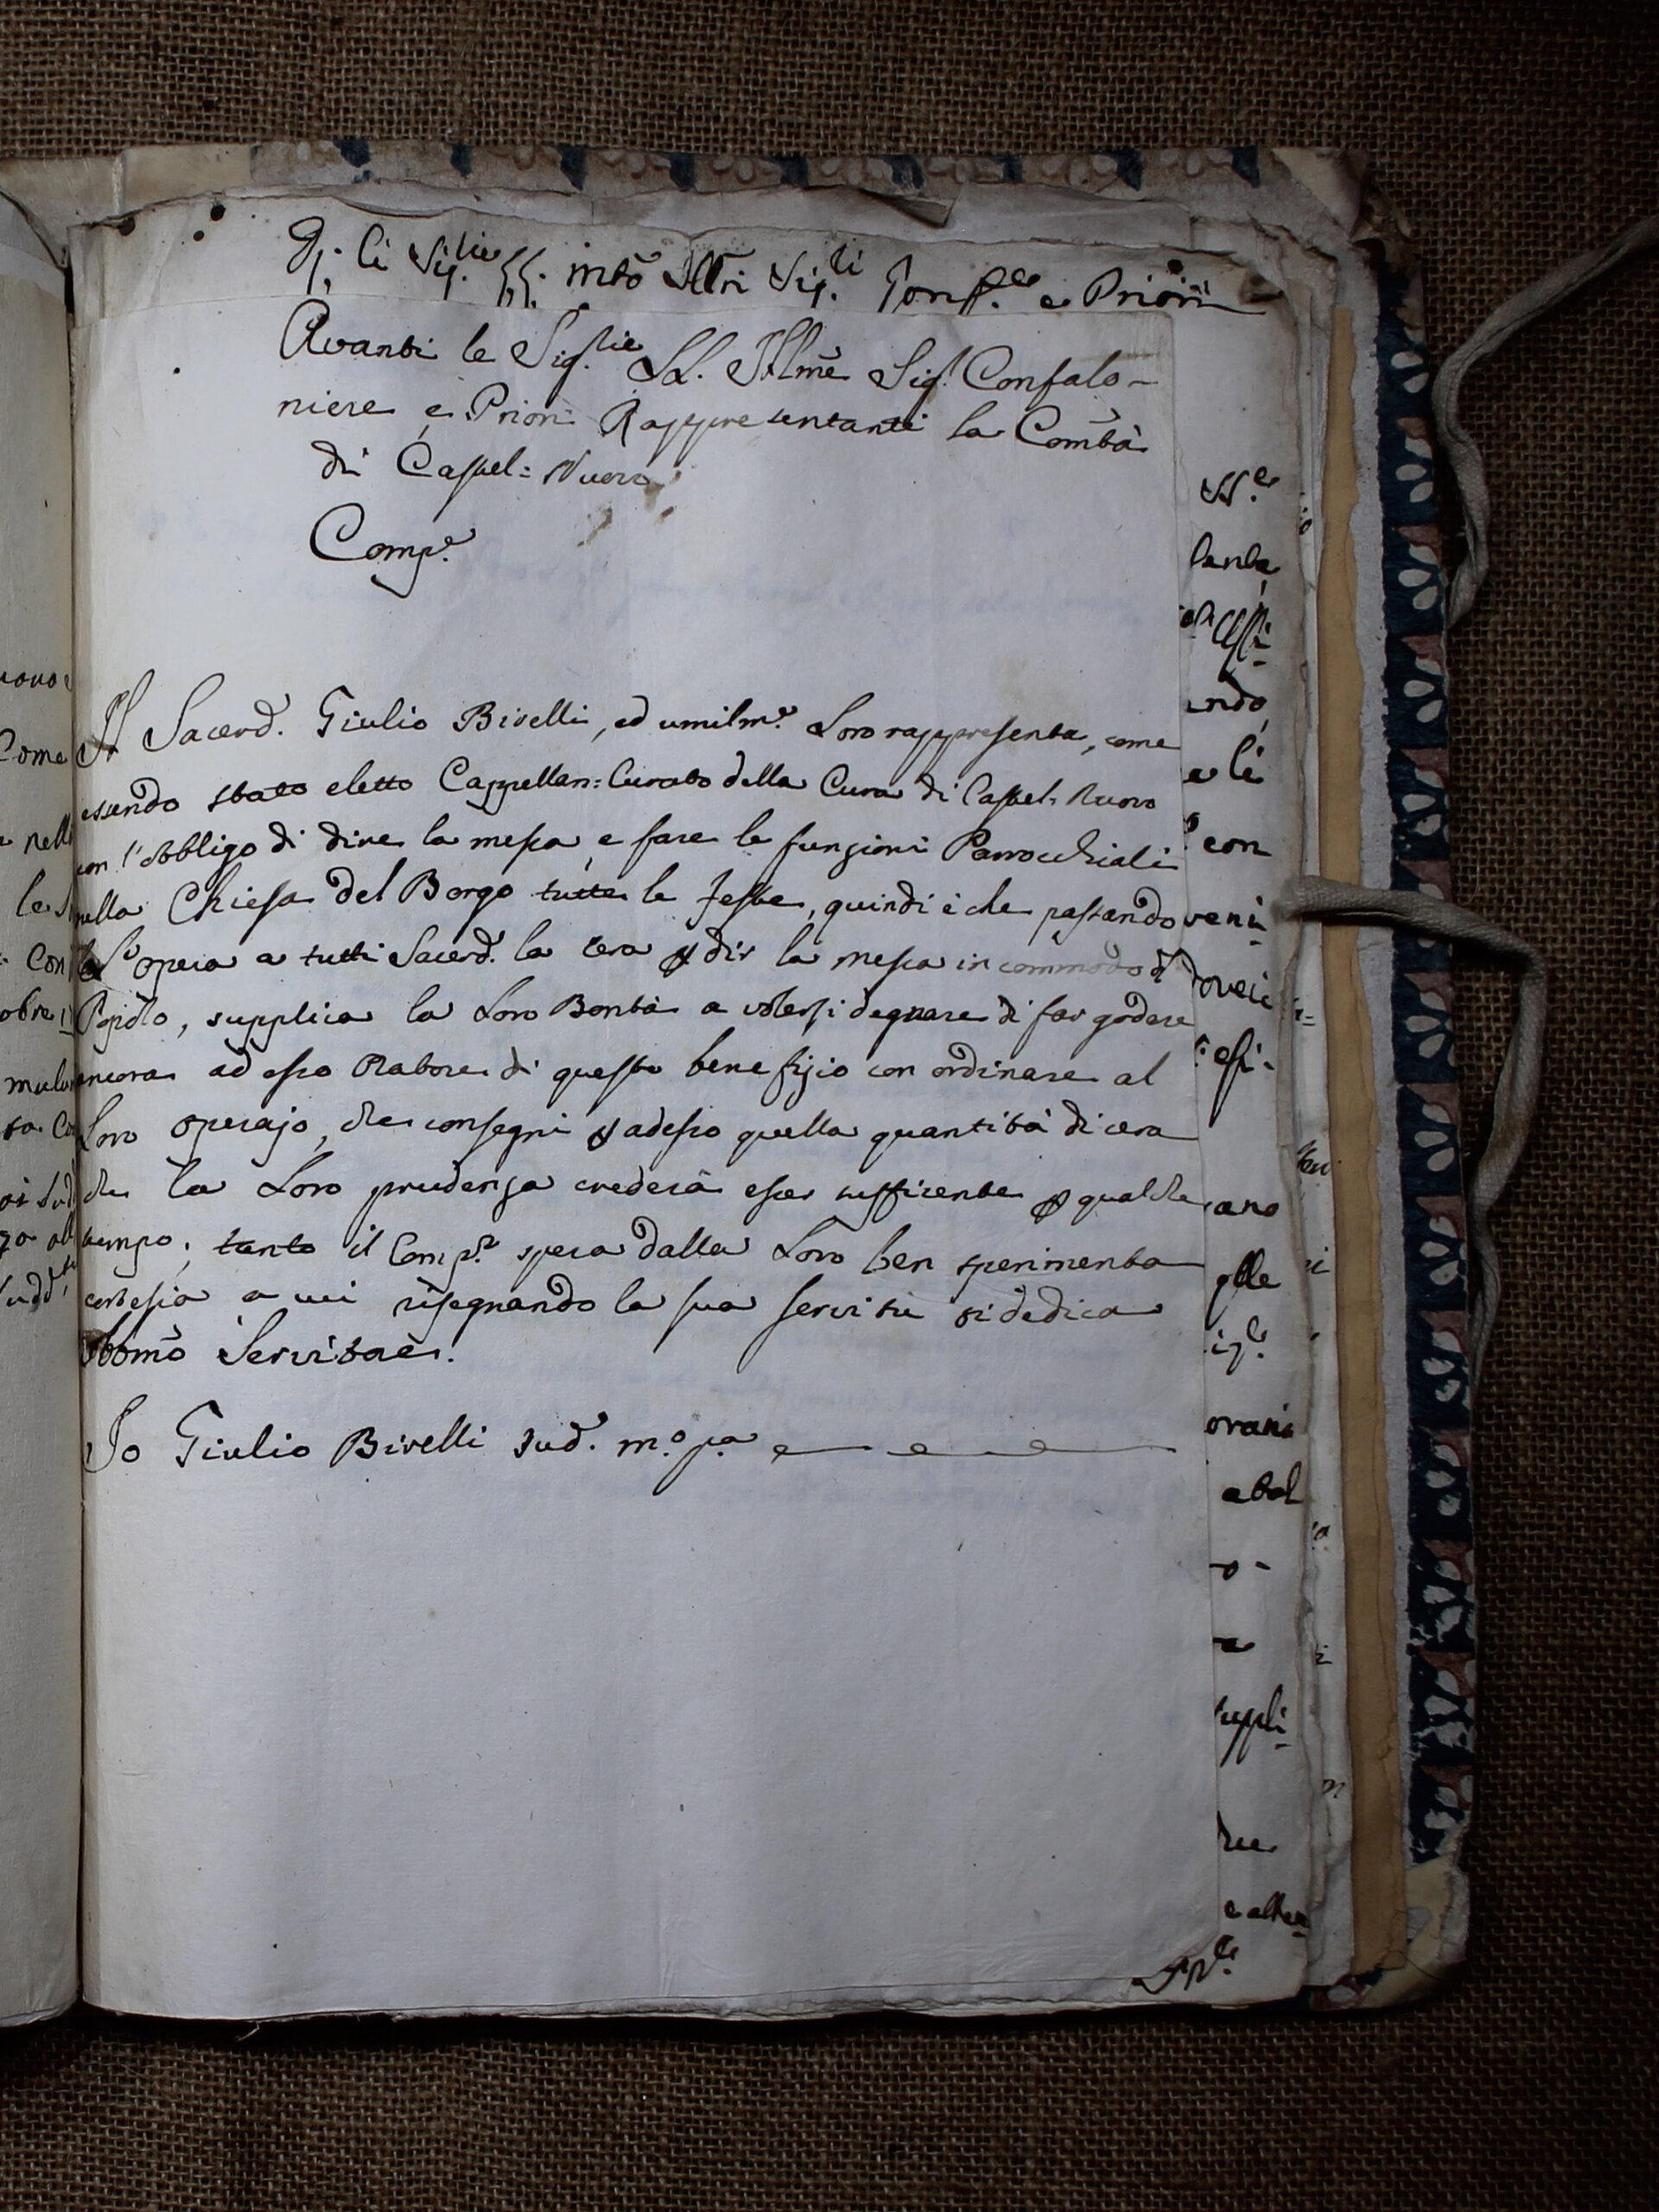 li Sig.lie SS. mto Illri Sig.li Gonf.e e Priori
Avanti le Sig.lie LL. Illme Sig.i Confalo-
niere e Priori Rappresentanti la Comtà
di Castel= Nuovo
Comp.e
Il Sacerd. Giulio Birelli, ed umilm.e Loro rappresenta, come
essendo stato eletto Cappellan= Curato della Cura di Castel= Nuovo
con l'obbligo di dire la messa, e fare le funzioni Parrocchiali
nella Chiesa del Borgo tutte le feste, quindi è che passando
l'opera a tutti Sacerd. la cera p dir la messa in commodo d
Popolo, supplica la Loro Bontà a volersi degnare di far godere
ancora ad esso Oratore di questo benefizio con ordinare al
Loro operajo, che consegni p adesso quella quantità di cera
che la Loro prudenza crederà esser sufficente p qualche
tempo; tanto il Comp.e spera dalla Loro ben sperimenta
cortesia a cui risegnando la sua servitù si dedica
obbmo Servitore.
Io Giulio Birelli sud. m.o p.a
SS.e
tanta
ando
e li
con
veni-
dovei
essi-
ano
glle
ig.e
orani
a bol
o-
a
suppli-
e altra